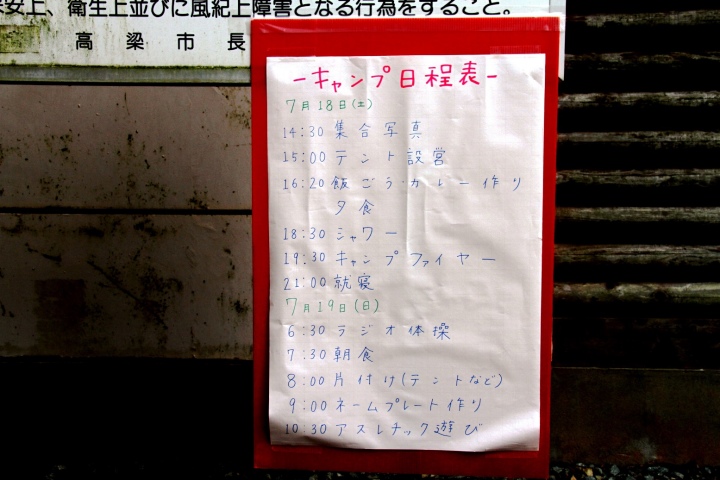 安上、衛生上並びに風紀上障害となる行為をすること。
高梁市長
-キャンプ日程表-
7月18日(土)
14:30 集合写真
15:00 テント設営
16:20 飯ごう・カレー作り
夕食
18:30 シャワー
19:30 キャンプファイヤー
21:00 就寝
7月19日(日)
6:30 ラジオ体操
7:30 朝食
8:00 片付け(テントなど)
9:00 ネームプレート作り
10:30 アスレチック遊び